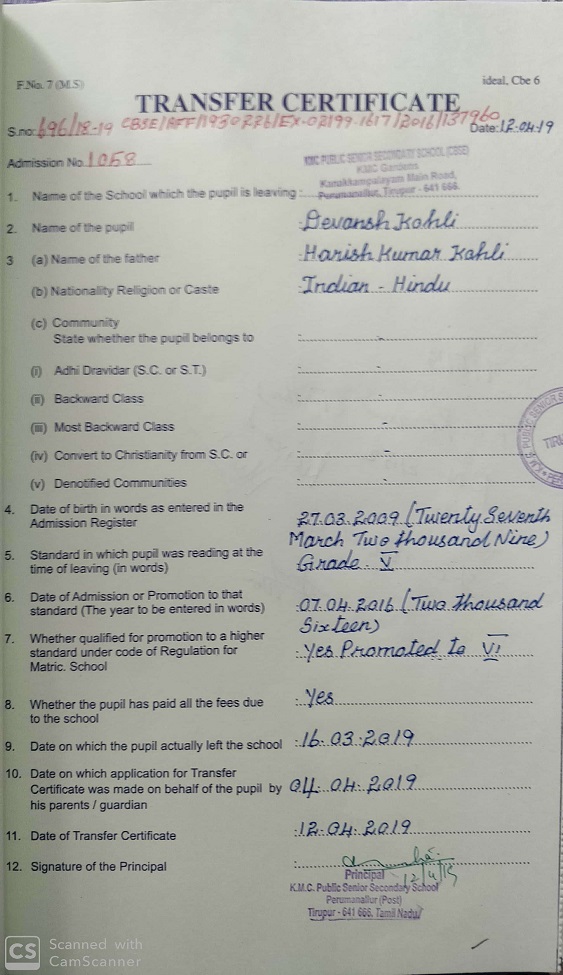 F.No. 7 (M.S)
ideal, Cbe 6
TRANSFER CERTIFICATE
S.no: 696/18-19 CBSE/AFF/1930226/EX-02199-1617/2016/137960 Date: 12.04.19
Admission No. 1058
KMC PUBLIC SENIOR SECONDARY SCHOOL (CBSE)
KMC Gardens
Kanakkampalayam Main Road,
Perumanallur, Tirupur - 641 666.
1. Name of the School which the pupil is leaving :
2. Name of the pupil : Devansh Kohli
3 (a) Name of the father : Harish Kumar Kohli
(b) Nationality Religion or Caste : Indian - Hindu
(c) Community
State whether the pupil belongs to : -
(i) Adhi Dravidar (S.C. or S.T.) : -
(ii) Backward Class : -
(iii) Most Backward Class : -
(iv) Convert to Christianity from S.C. or : -
(v) Denotified Communities : -
4. Date of birth in words as entered in the
Admission Register
27.03.2009 (Twenty Seventh
March Two thousand Nine)
5. Standard in which pupil was reading at the
time of leaving (in words)
Grade - V
6. Date of Admission or Promotion to that
standard (The year to be entered in words)
:07.04.2016 (Two thousand
Sixteen)
7. Whether qualified for promotion to a higher
standard under code of Regulation for
Matric. School
: Yes Promoted to VI
8. Whether the pupil has paid all the fees due
to the school
: Yes
9. Date on which the pupil actually left the school : 16.03.2019
10. Date on which application for Transfer
Certificate was made on behalf of the pupil by
his parents / guardian
04.04.2019
11. Date of Transfer Certificate : 12.04.2019
12. Signature of the Principal :
12/4/19
Principal
K.M.C. Public Senior Secondary School
Perumanallur (Post)
Tirupur - 641 666, Tamil Nadu
CS Scanned with
CamScanner